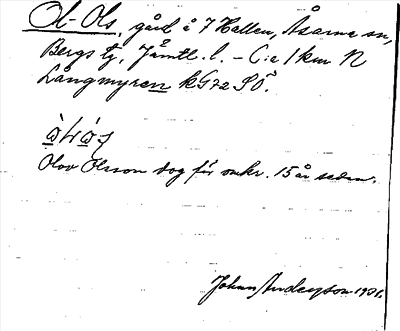 Ol-Ols, gård å 7 Hallen, Åsarne sn,
Bergs tg, Jämtl. l. - C:a 1 km N
Långmyren kG72 SÖ.
Olov Olsson dog för omkr. 15 år sedan.
Johan Anderson 1931.